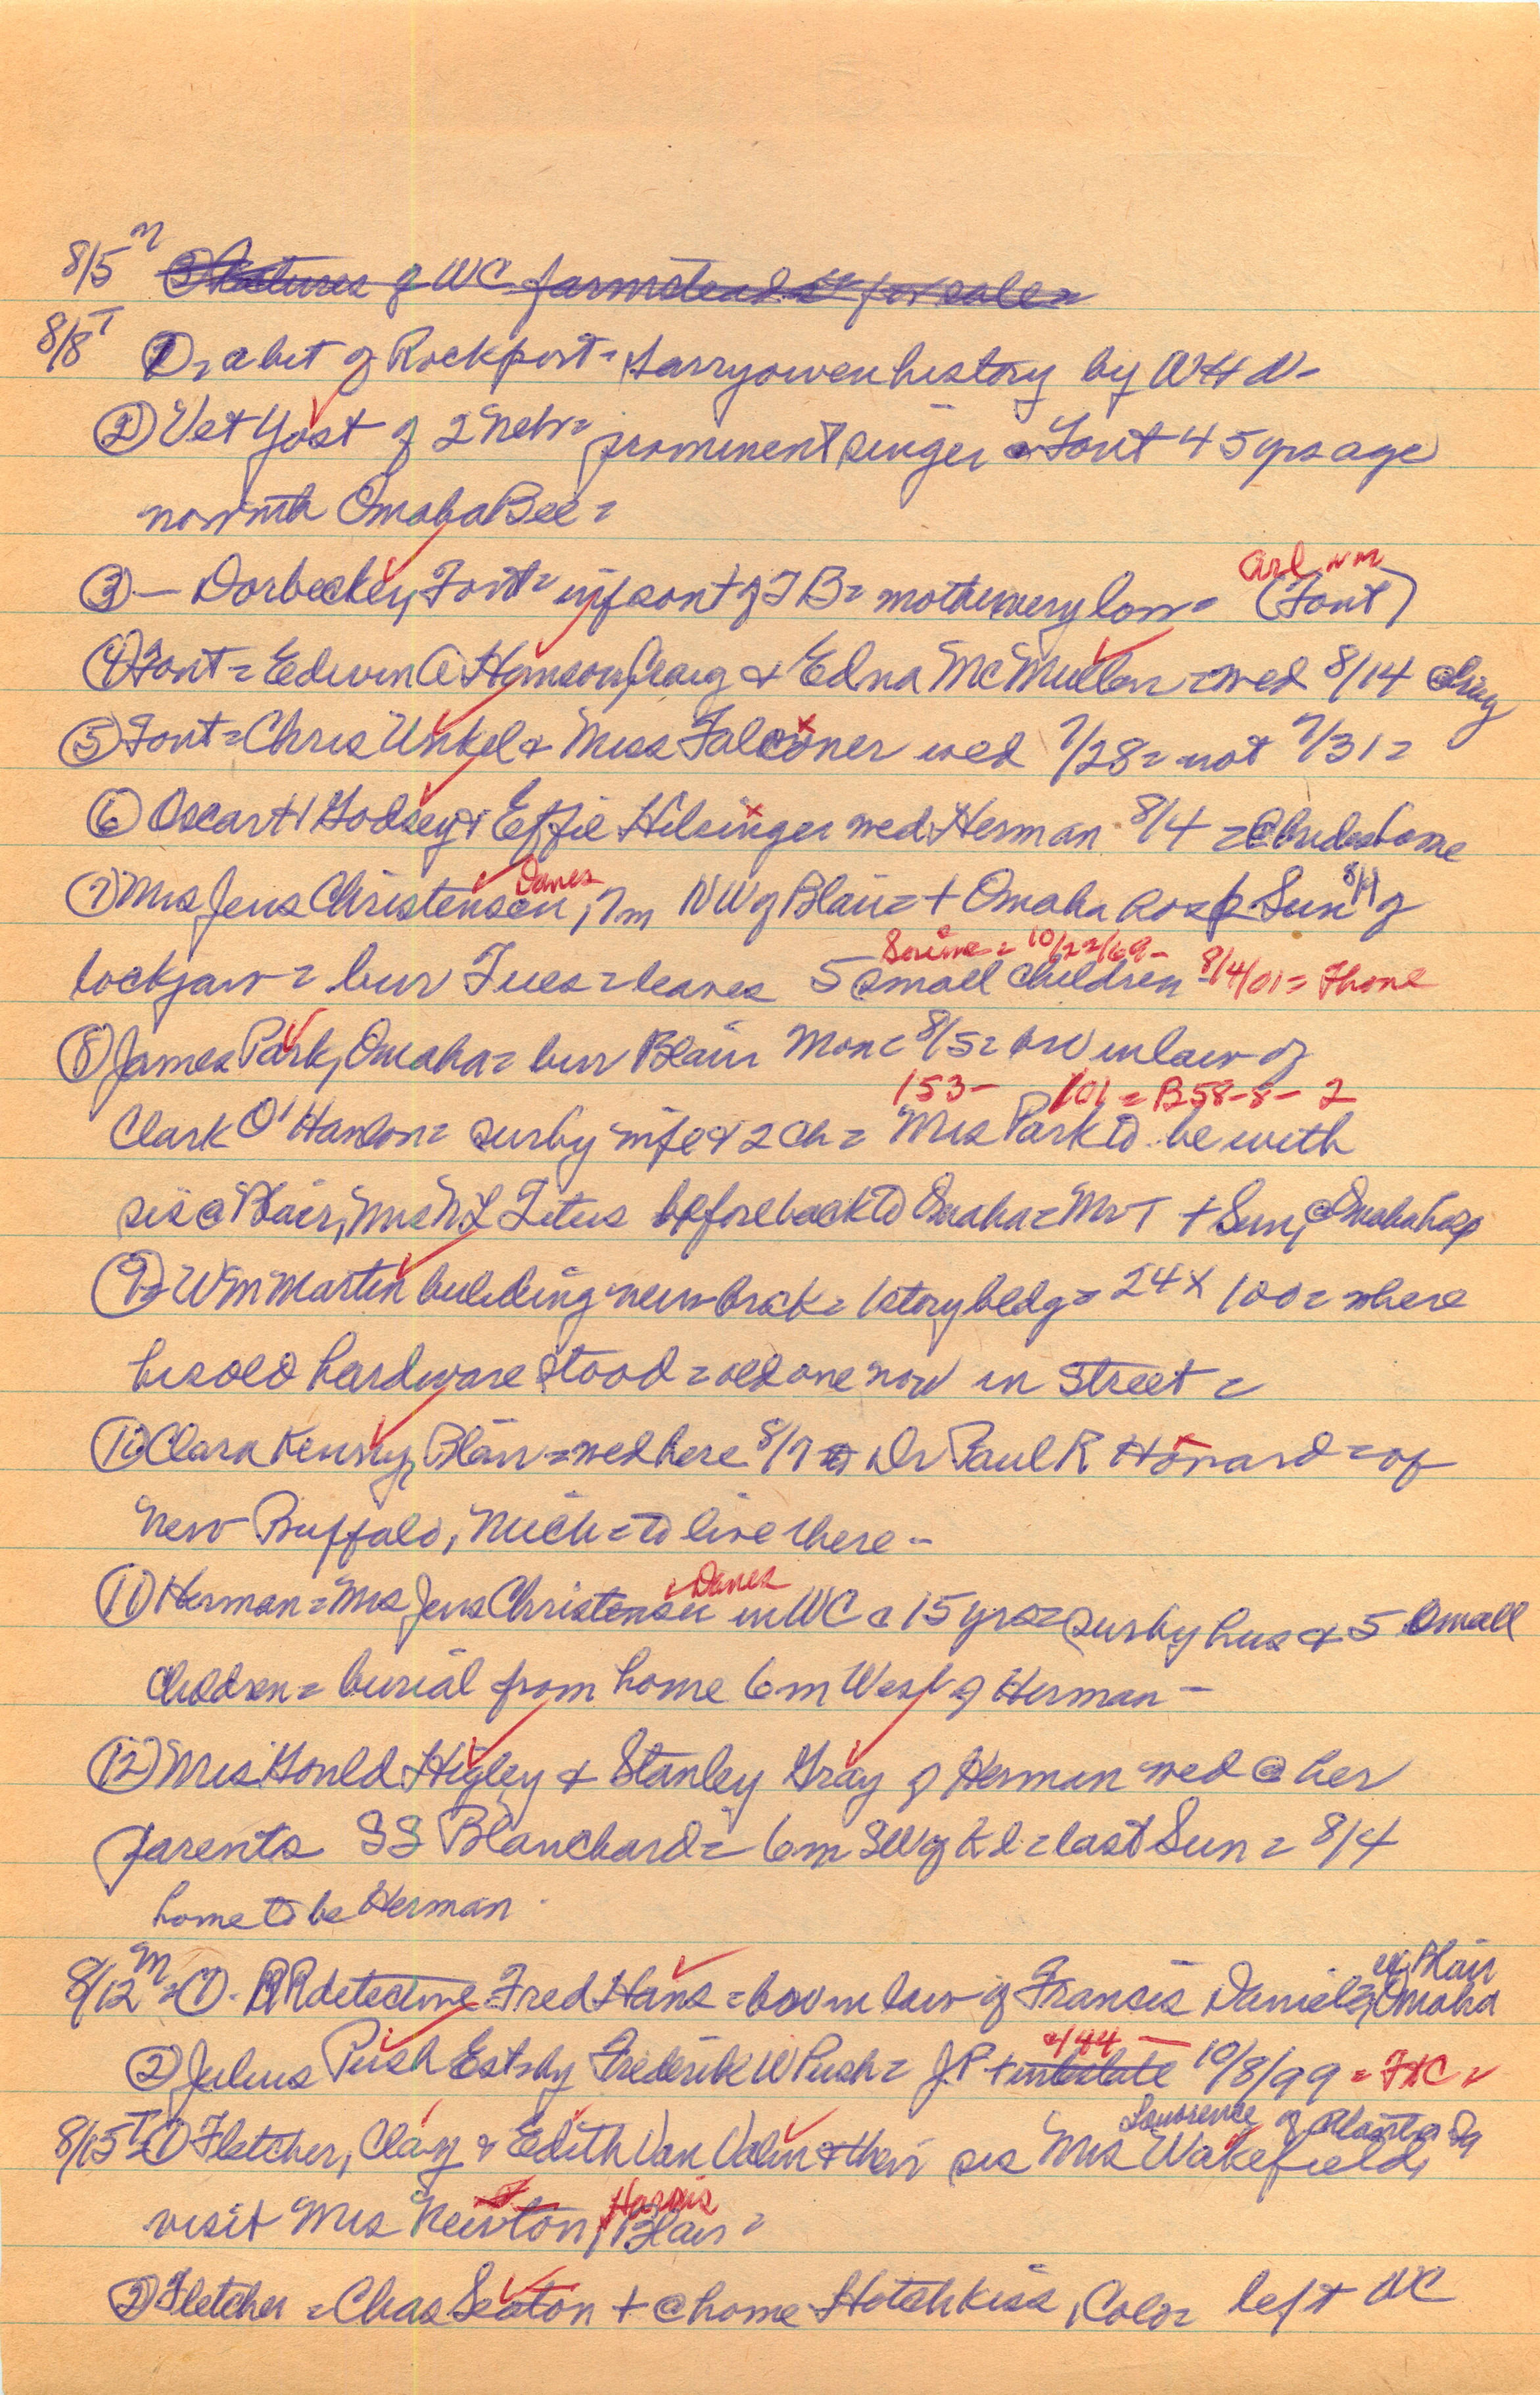 8/5 M Pictures of WC farmsteads for sale =
8/8 T ① = a bit of Rockport = history by WHW -
② Vet Yost of 2 Nebr = prominent singer Font 45 yrs age
now with Omaha Bee =
Carl wm
③ - Dorbeckey, Font = inf sont of TB = mother very low = (Font)
④ Font = Edwin A Hanson, Craig & Edna McMullen = wed 8/14 Craig
⑤ Font = Chris Unkel & Miss Falconer wed 7/28 = not 7/31 =
⑥ Oscar H Godsey & Effie Hilsinger wed Herman 8/4 = @ brides home
Danes
⑦ Mrs Jens Christensen, 7m NW of Blair = + Omaha hosp Sun 8/4 of
Sorine = 10/22/69 -
lockjaw = bur Tues = leaves 5 small children - 8/4/01 = Thone
⑧ James Park, Omaha = bur Blair Mon = 8/5 = bro in law of
153 - 101 = B58-8-2
Clark O'Hanlon = sur by wife & 2 ch = Mrs Park to be with
sis @ Blair, Mrs WL Titus before back to Omaha = Mr T + Sun, @ Omaha hosp
⑨ = Wm Martin building new brick = 1 story bldg = 24 x 100 = where
his old hardware stood = old one now in street =
⑩ Clara Kenny, Blair = wed here 8/7 to Dr Paul R Howard = of
New Buffalo, Mich = to live there -
= Danes
⑪ Herman = Mrs Jens Christensen in WC = 15 yrs = sur by hus & 5 small
children = burial from home 6m West of Herman -
⑫ Mrs Gould Higley & Stanley Gray of Herman wed @ her
parents SS Blanchard = 6m SW of Kd = last Sun = 8/4
home to be Herman
ex Blair
8/12 M = ① - RR detective Fred Hans = bro in law of Francis Daniels, Omaha
444 -
② Julius Push Est = by Frederik W Push = JP + intestate 10/8/99 = FHC =
Lawrence of Atlanta Ga
8/15 T = ① Fletcher, Clay & Edith Van Valin & their sis Mrs Wakefield,
Harris
visit Mrs Newton, Blair =
② Fletcher = Chas Seaton + @ home Hotchkiss, Colo = left WC